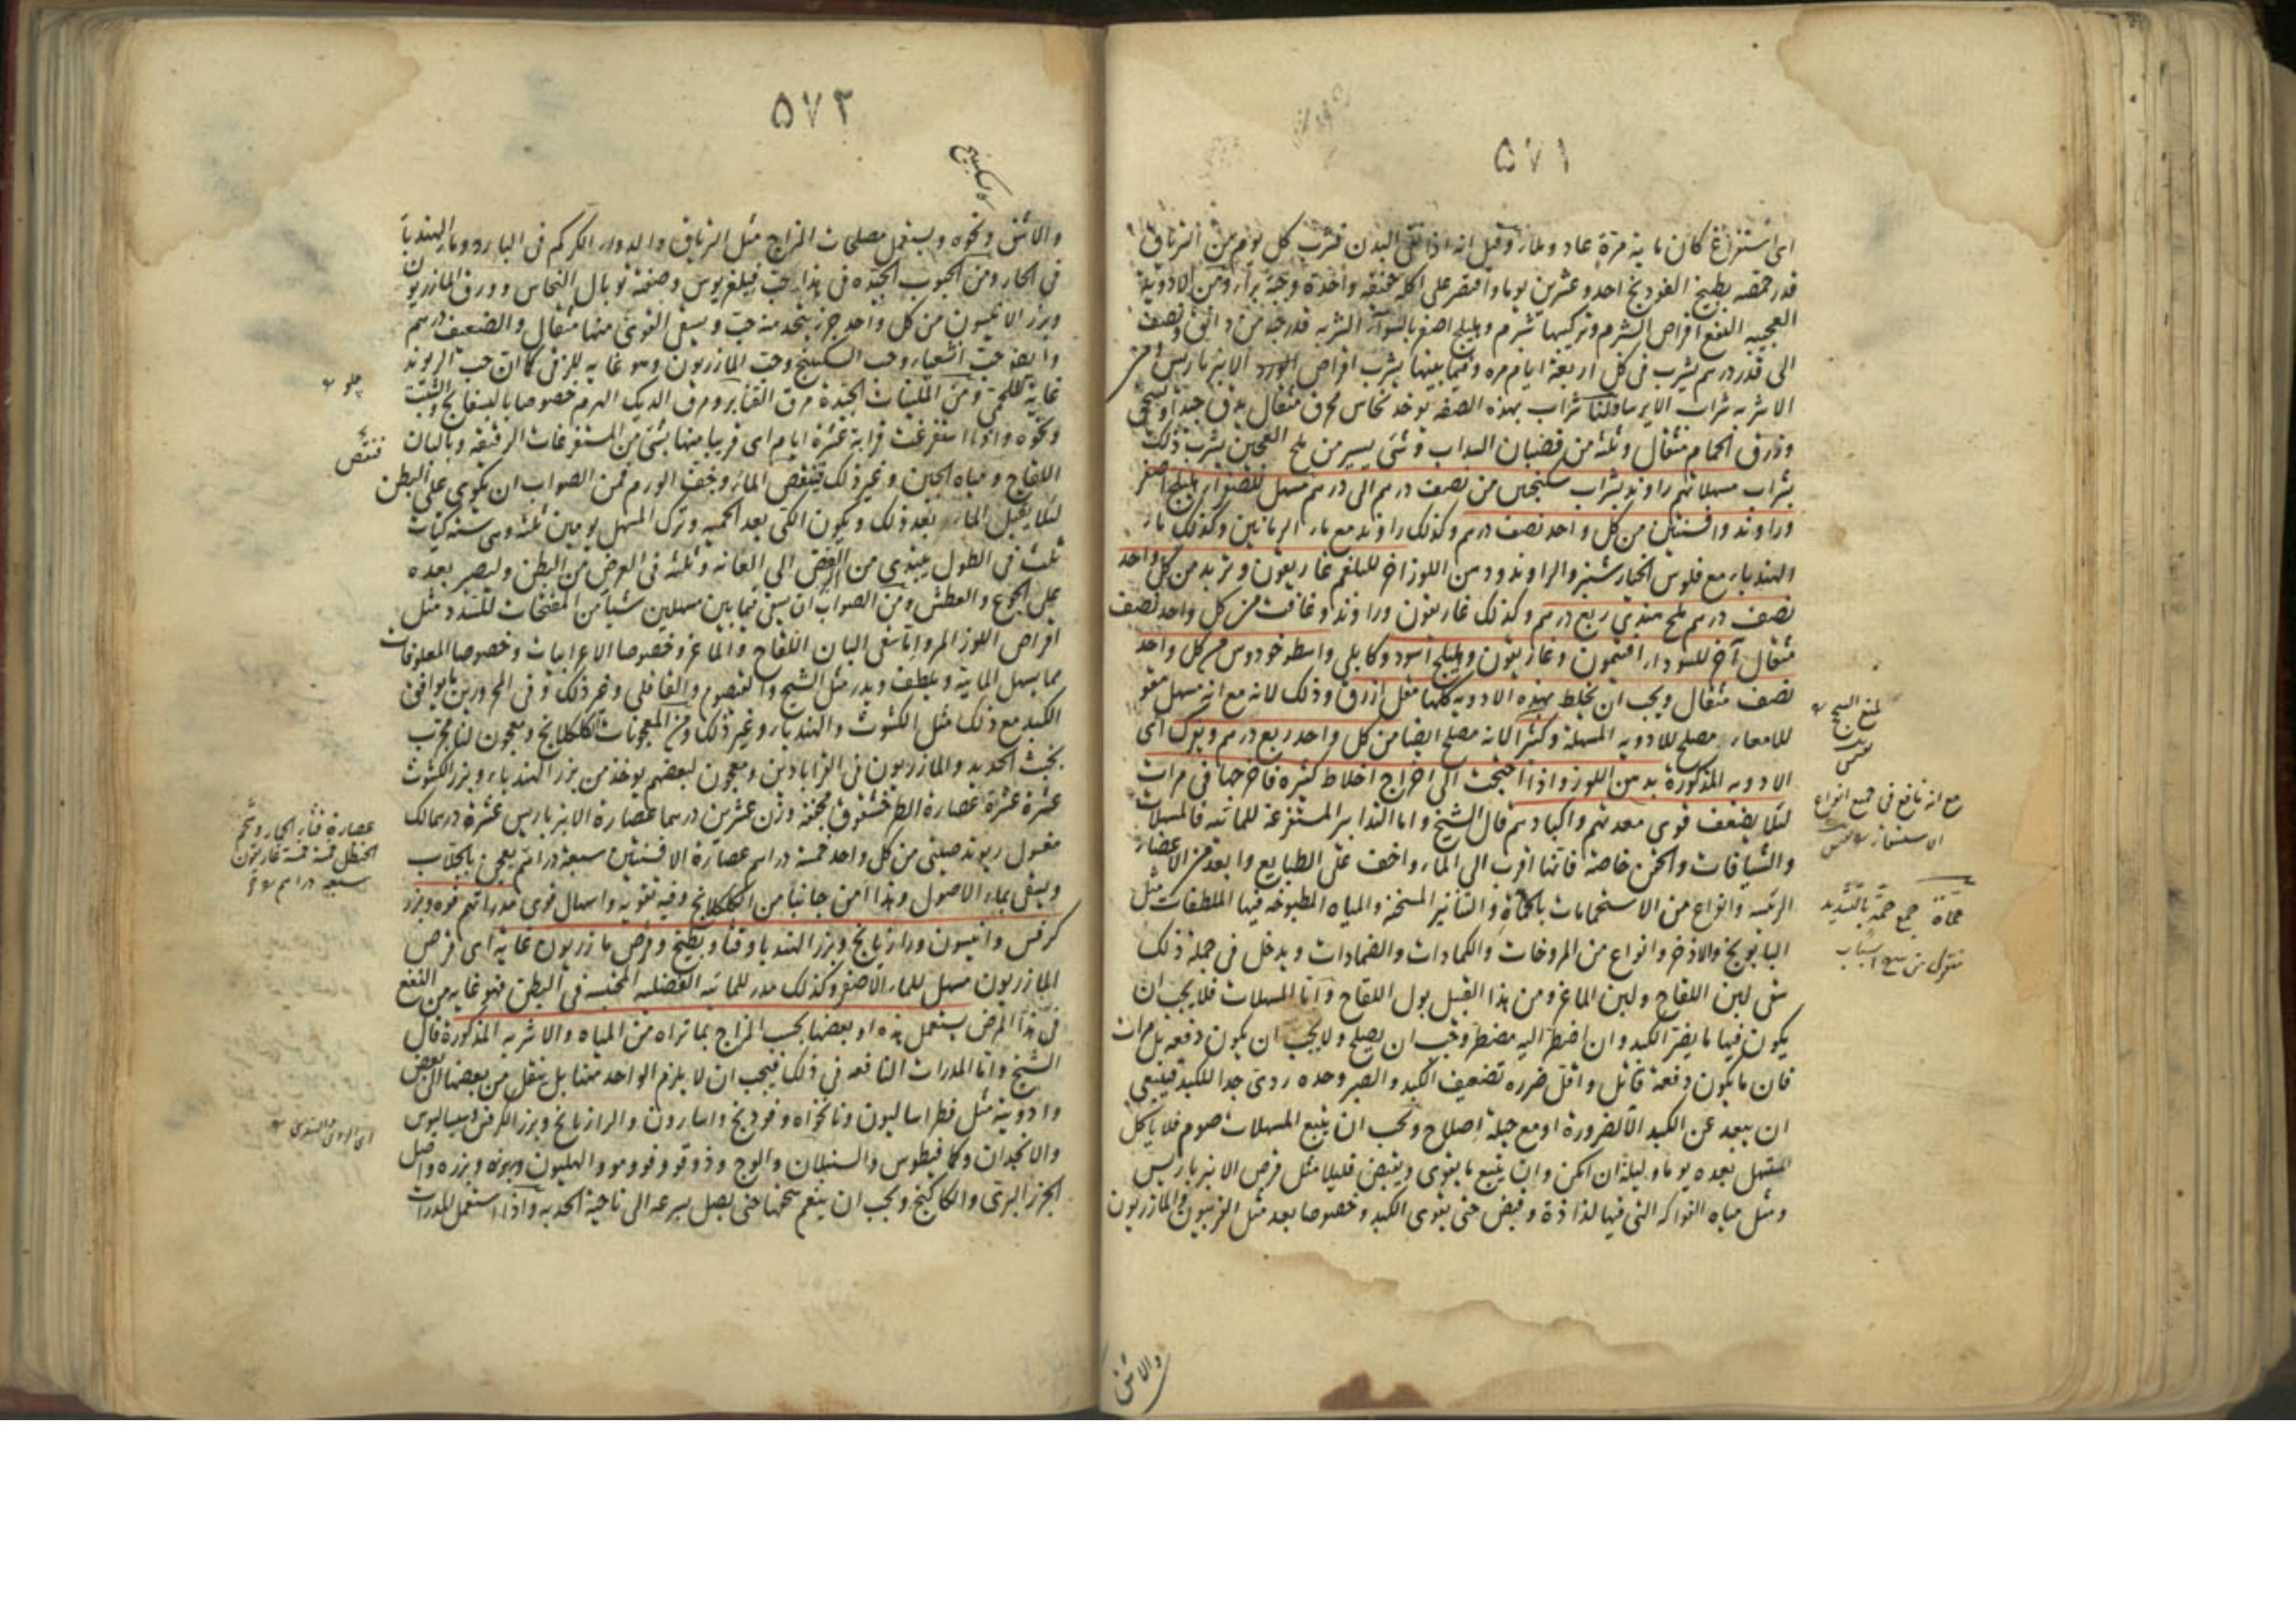 ٥٧١
اى استفراغ كان مايية مرة عاد وملأ وقيل انه اذا نقى البدن فشرب كل يوم من الترياق
قدر حمصة بطبيخ الفودنج احد وعشرين يوما واقتصر على اكلة خفيفة واحدة وجبة برأ ومن الادوية
العجيبة النفع اقراص الشبرم وتركيبها شبرم وهليلج اصفر بالسواء الشربة قدر جة من دانق ونصف
الى قدر درهم يشرب فى كل اربعة ايام مرة وفيما بينها يشرب اقراص الورد الانبرباريس ومن
الاشربة شراب الايرسا ولنا شراب بهذه الصفة يوخذ نحاس محرق مثقال يدق جيدا ويسحق
وذرق الحمام مثقال وثلثة من قضبان السداب وشئ يسير من ملح العجين يشرب ذلك
بشراب مسهلاتهم راوند بشراب سكنجبين من نصف درهم الى درهم مسهل للصفراء هليلج اصفر
وراوند وافسنتين من كل واحد نصف درهم وكذلك راوند مع ماء الرمانين وكذلك ماء
الهندباء مع فلوس الخيارشنبر والراوند ودهن اللوز اخر للبلغم غاريقون وتربد من كل واحد
نصف درهم ملح هندي ربع درهم وكذلك غاريقون وراوند وغافت من كل واحد نصف
مثقال آخر للسوداء افتيمون وغاريقون وهليلج اسود وكابلى واسطوخودوس من كل واحد
نصف مثقال ويجب ان يخلط بهذه الادوية كلها مقل ازرق وذلك لانه مع انه مسهل مقو
للامعاء مصلح للادوية المسهلة وكثيرا لانه مصلح ايضا من كل واحد ربع درهم ويؤك اى
الادوية المذكورة بدهن اللوز واذا احتيجت الى اخراج اخلاط كثيرة فاخرجها فى مرات
لئلا يضعف قوى معدتهم واكبادهم قال الشيخ واما التدابير المستفرغة للمائية فالمسهلات
والشيافات والحقن خاصة فانها اقرب الى الماء واخف على الطبايع وابعد من الاعضاء
الرئيسة وانواع من الاستحمامات بالحمأة والتنانير المسخنة والمياه المطبوخة فيها الملطفات مثل
البابونج والاذخر وانواع من المروخات والكمادات والضمادات ويدخل فى جملة ذلك
سقى لبن اللقاح ولبن الماعز ومن هذا القبيل بول اللقاح واما المسهلات فلا يجب ان
يكون فيها ما يضر الكبد وان اضطر اليه مضطر وجب ان يصلح ولا يجب ان يكون دفعة بل مرات
فان ما يكون دفعة قاتل واقل ضرره تضعيف الكبد والصبر وحده ردى جدا للكبد فينبغى
ان يبعد عن الكبد الا لضرورة او مع حيلة اصلاح ويجب ان يتبع المسهلات صوم فلا ياكل
المستهل بعده يوما وليلة ان امكن وان يتبع ما يقوى ويقبض قليلا مثل قرص الانبرباريس
ومثل مياه الفواكه التى فيها لذاذة وقبض حتى يقوى الكبد وخصوصا بعد مثل الفربيون والمازريون
والاشق
لمنع السحج
مع انه نافع فى جميع انواع
الاستسقاء
حمأة جمع حمة بالتشديد
منقول من شرح اسباب
٥٧٢
والسكبينج
والاشق ونحوه ويستعمل مصلحات المزاج مثل الترياق والدواء الكركم فى البارد وماء الهندبا
فى الحار ومن الحبوب الجيدة فى هذا حب فيلغريوس وصنعته توبال النحاس وورق المازريون
وبزر الانيسون من كل واحد جزء يتخذ منه حب ويسقى القوى منها مثقال والضعيف درهم
وايضا حب الشعير وحب السكبينج وحب المازريون وهو غاية للزقى كما ان حب الريوند
غاية للحمى ومن الملينات الجيدة مرق القنابر ومرق الديك الهرم خصوصا بالبسفايج والشبت
ونحوه واذا استفرغت قرابة عشرة ايام اى قريبا منها بشئ من المستفرغات الرقيقة وبالبان
اللقاح ومياه الجبن وغير ذلك فتنقص الماء وخف الورم فمن الصواب ان يكوى على البطن
لئلا يقبل الماء بعد ذلك ويكون الكى بعد الحمية وترك المسهل يومين ثلثة وهى ستة كيات
ثلث فى الطول يبتدى من القص الى العانة وثلثة فى العرض من البطن وليصبر بعده
على الجوع والعطش ومن الصواب ان يسقى فيما بين مسهلين شيأ من المفتحات للسدد مثل
اقراص اللوز المر واما سقى البان اللقاح والماعز وخصوصا الاعرابيات وخصوصا المعلوفات
مما يسهل المايية ويلطف ويدر مثل الشيح والقيصوم والقاقلى وغير ذلك وفى المحرورين ما يوافق
الكبد مع ذلك مثل الكشوث والهندباء وغير ذلك ومن المعجونات الكلكلانج ومعجون لنا مجرب
بخبث الحديد والمازريون فى القراباذين ومعجون لبعضهم يوخذ من بزر الهندباء وبزر الكشوث
عشرة عشرة عصارة الطرخشقوق مجففة وزن عشرين درهما عصارة الانبرباريس عشرة دراهم لك
مغسول ريوند صينى من كل واحد خمسة دراهم عصارة الافسنتين سبعة دراهم يعجن بالجلاب
ويسقى بماء الاصول وهذا امن جانبا من الكلكلانج وفيه تقوية واسهال قوى مدراتهم فوه وبزر
كرفس وانيسون ورازيانج وبزر الهندبا وقثأ وبطيخ وقرص مازريون غاية اى قرص
المازريون مسهل للماء الاصفر وكذلك مدر للمائية الفضلية المحتبسة فى البطن فهو غاية من النفع
فى هذا المرض يستعمل هذه او بعضها بحسب المزاج بما تراه من المياه والاشربة المذكورة قال
الشيخ واما المدرات النافعة فى ذلك فيجب ان لا يلزم الواحد منها بل ينتقل من بعضها الى بعض
وادوية مثل فطراساليون ونانخواه وفودنج واسارون والرازيانج وبزر الكرفس وسيساليوس
والانجدان وكمافيطوس والسنبلان والوج ودوقو وفو ومو والهليون وبزره واصل
الجزر البرى والكاكنج ويجب ان ينعم سحقها حتى يصل بسرعة الى ناحية الحدبة واذا استعمل المدرات
فتنقص
عصارة قثأ الحمار وشحم
الحنظل خمسة خمسة غاريقون
سبعة دراهم
اى الرومى والهندى